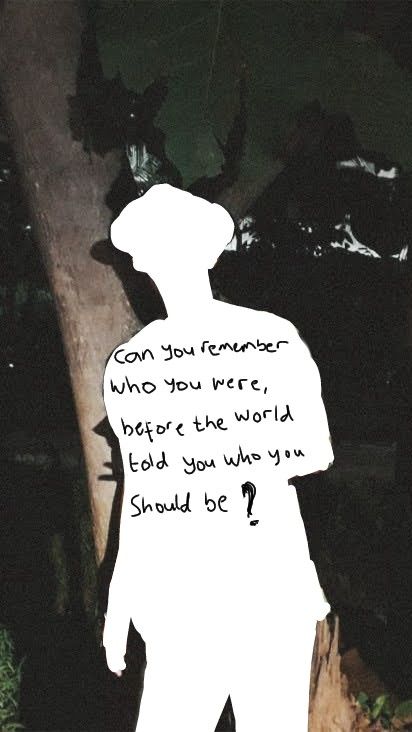 Can you remember
who you were,
before the world
told you who you
should be?